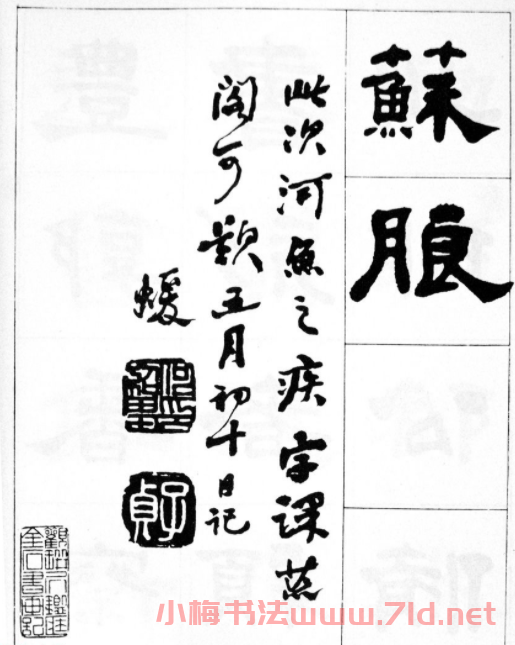 蘇
朖
此次河魚之疾字課荒
閣可歎五月初十日記
蝯
子貞
小梅书法www.7ld.net